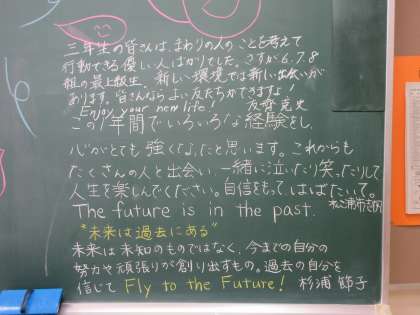 三年生の皆さんは、まわりの人のことを考えて
行動できる優しい人ばかりでした。さすが6.7.8
組の最上級生。新しい環境では新しい出会いが
あります。皆さんならよい友だちができますよ!
Enjoy your new life!
この1年間でいろいろな経験をし、
心がとても強くなったと思います。これからも
たくさんの人と出会い、一緒に泣いたり笑ったりして
人生を楽しんでください。自信をもって、はばたいて。
The future is in the past.
"未来は過去にある"
未来は未知のものではなく、今までの自分の
努力や頑張りが創り出すもの。過去の自分を
信じて Fly to the Future! 杉浦 節子